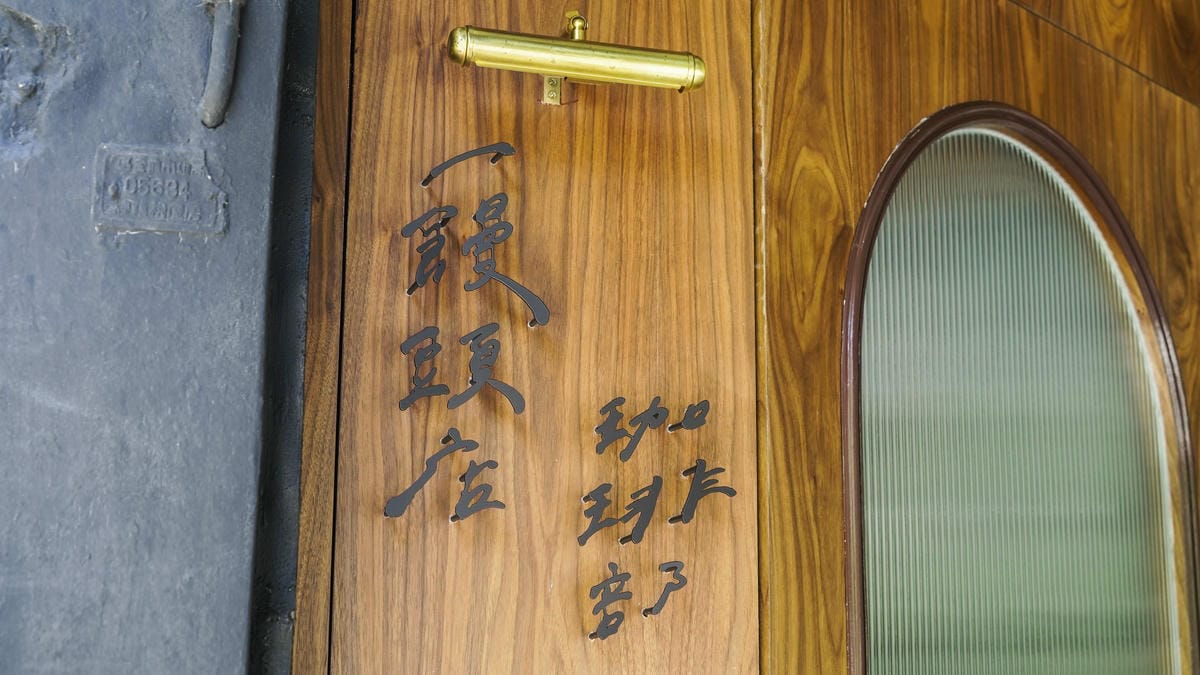 珈琲部
一饅頭店
05634